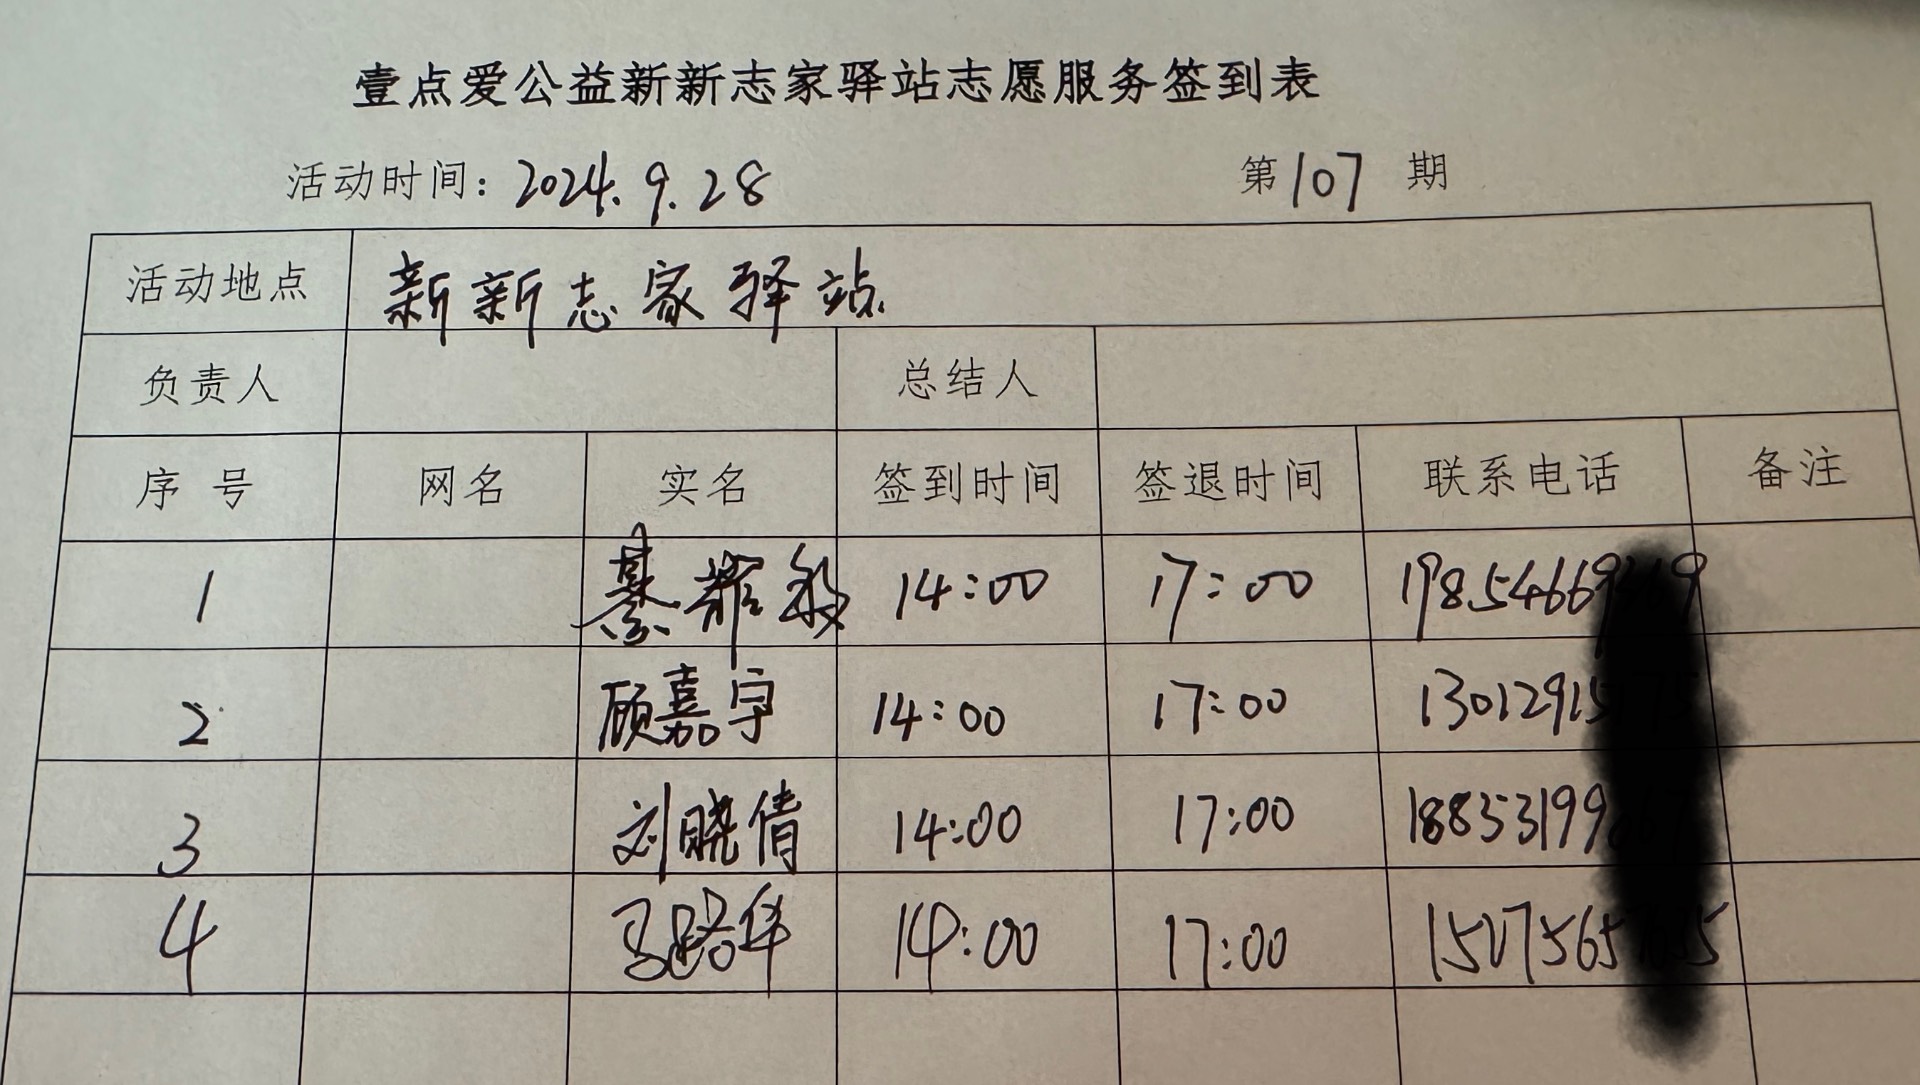 壹点爱公益新新志家驿站志愿服务签到表
活动时间：2024.9.28 第107期
活动地点 新新志家驿站
负责人 总结人
序号 网名 实名 签到时间 签退时间 联系电话 备注
1 綦 14:00 17:00 19854669
2 顾嘉宇 14:00 17:00 1301291
3 刘晓倩 14:00 17:00 18853199
4 马路华 14:00 17:00 15075565